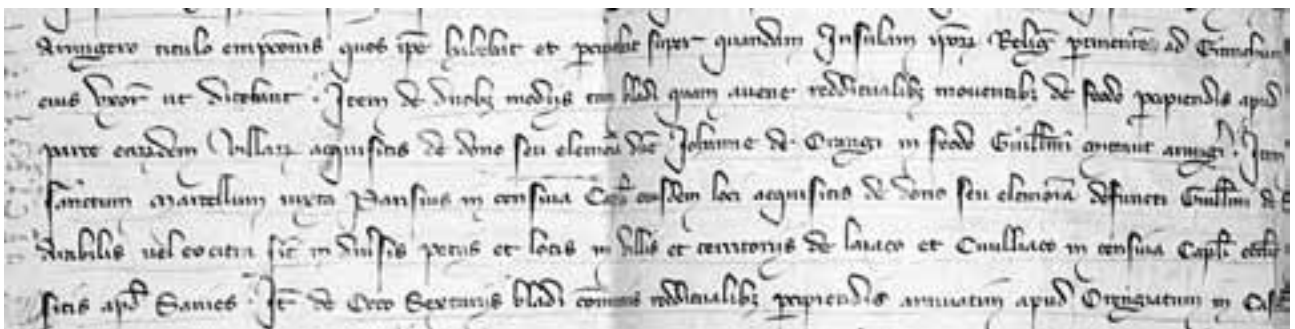 Armigero titulo empcōnis quos ip̄e habebat et percipiebat super quandam Insulam ip̄oꝝ Relig̃ ptinent̃ ad
eius vxor̃ ut dicebant . Item de duobꝫ modijs tam bladi quam auene redditualibꝫ mouentibꝫ de feodo pcipiendis apud
parte earūdem Villarꝫ acquisitis de dono seu elemōa dñe Johanne de Orengi in feodo Guill̃mi armig̃i . Item
sanctum Marcellum iuxta Parisius in censiua Cap̃li eiusdem loci acquisitis de dono seu elemosina defuncti Guill̃mi de
Arabilis uel eocirca sit̃ in diuersis peciis et locis in villis et territoriis de et Ciuilliaco in censiua Cap̃li eccl̃ie
sitis apd̃ Sauies . It̃ de Octo Sextariis bladi redditualibꝫ pcipiendis annuatim apud Orengiacum in